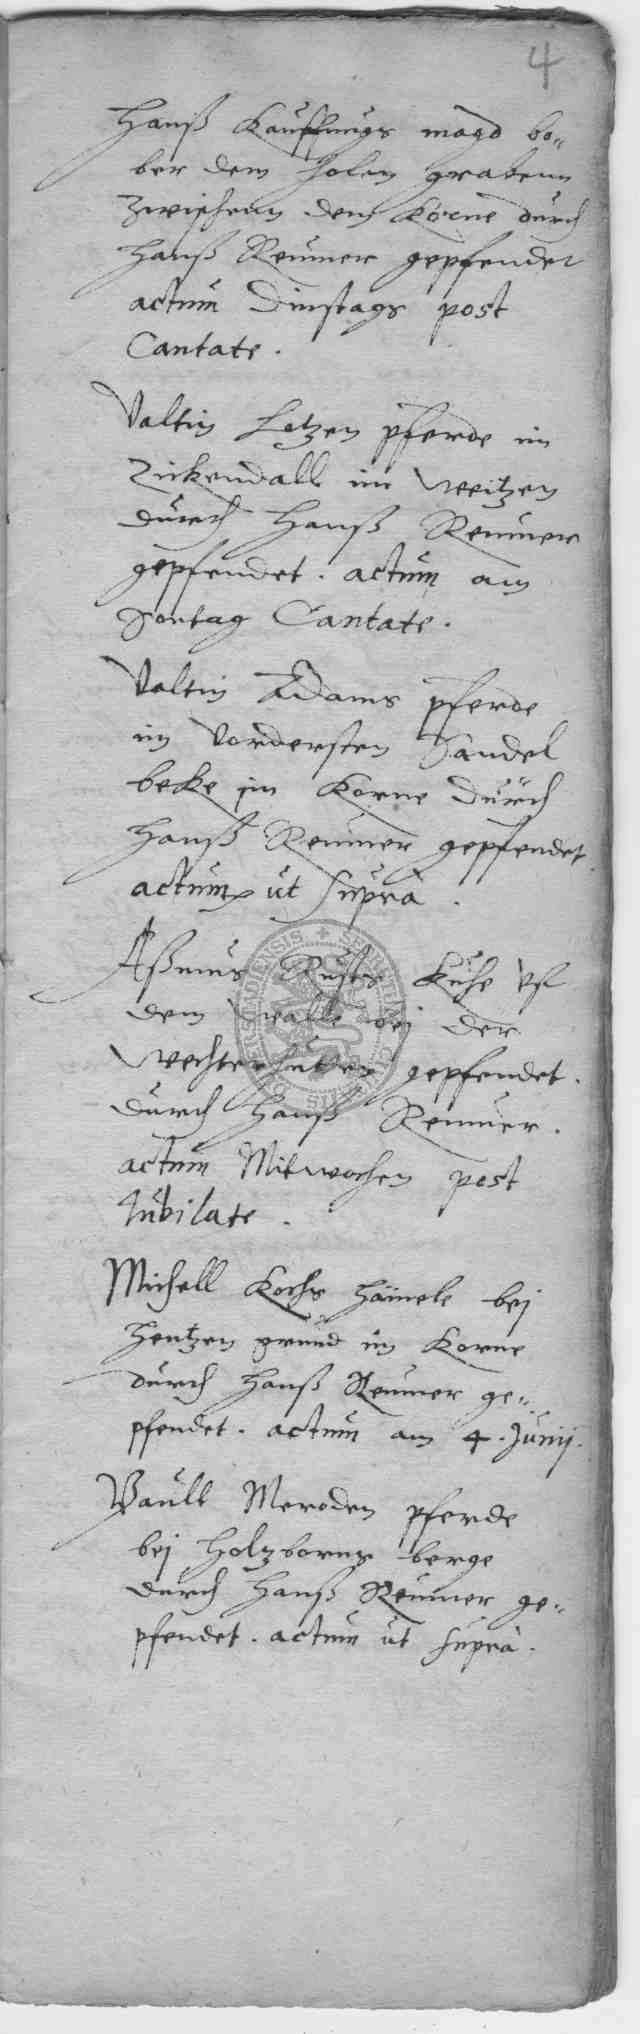 4
Hanß Kauffungs magd bo„
ber dem holen grabenn
Zwischenn dem Korne durch
Hanß Reumer gepfendet
actum Dinstags post
Cantate .
Valtin Hotzen pferde im
Zickendall im weitzen
durch Hanß Reumer
gepfendet . actum am
Sontag Cantate .
Valtin Adams pferde
im Vordersten Sandel
beke im Korne durch
Hanß Reumer gepfendet
actum ut supra .
Aßmus Rusts Kuhe vf
dem walle bei der
wechterhutten gepfendet .
durch Hanß Reumer .
actum Mitwochen post
Jubilate .
Michell Kochs bei
Hentzen grund im Korne
durch Hanß Reumer ge„
pfendet . actum am 4 . Junij .
Paull Meroden pferde
bei Holzborns berge
durch Hanß Reumer ge„
pfendet . actum ut supra .